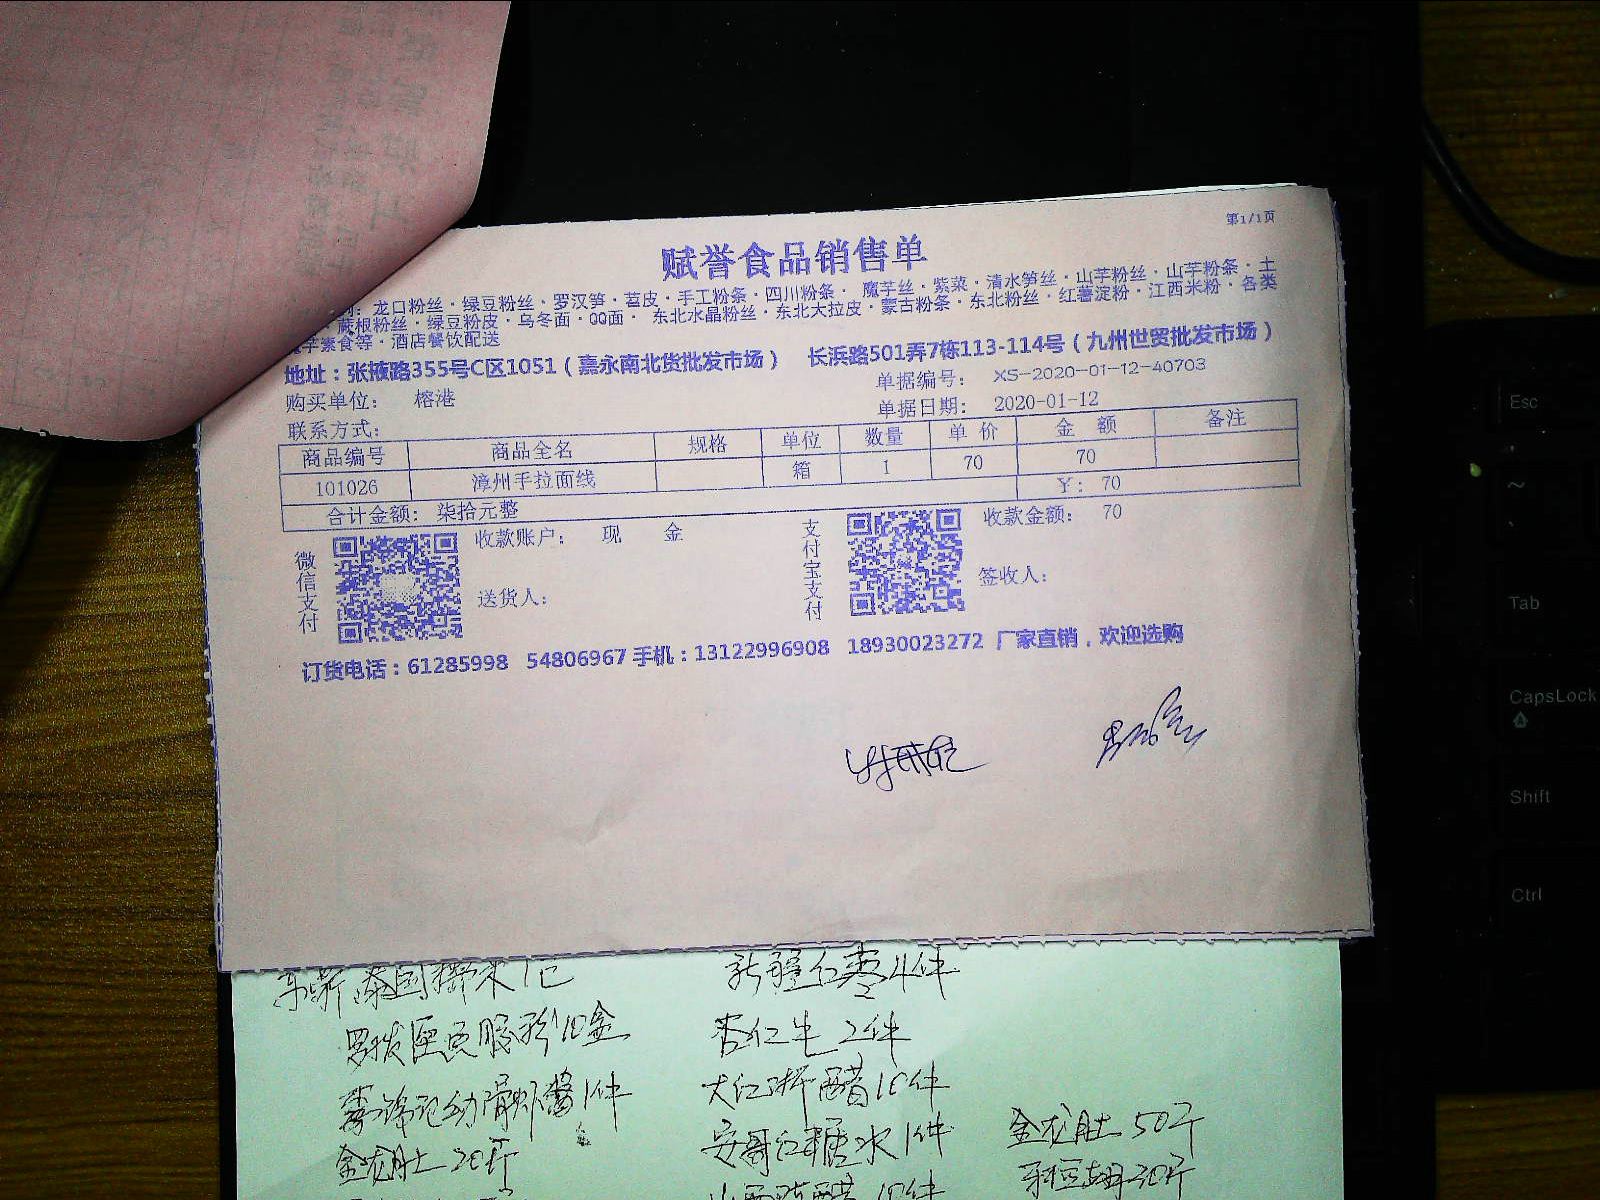 第1/1页
赋誉食品销售单
龙口粉丝·绿豆粉丝·罗汉笋·苕皮·手工粉条·四川粉条·魔芋丝·紫菜·清水笋丝·山芋粉丝·山芋粉条·土
蕨根粉丝·绿豆粉皮·乌冬面·QQ面·东北水晶粉丝·东北大拉皮·蒙古粉条·东北粉丝·红薯淀粉·江西米粉·各类
芋素食等·酒店餐饮配送
地址：张掖路355号C区1051（嘉永南北货批发市场） 长浜路501弄7栋113-114号（九州世贸批发市场）
购买单位： 榕港 单据编号： XS-2020-01-12-40703
联系方式： 单据日期： 2020-01-12
商品编号 商品全名 规格 单位 数量 单价 金额 备注
101026 漳州手拉面线 箱 1 70 70
合计金额： 柒拾元整 ￥：70
微信支付 收款账户： 现 金 支付宝支付 收款金额： 70
送货人： 签收人：
订货电话：61285998 54806967 手机：13122996908 18930023272 厂家直销，欢迎选购
泰国 米1包 新疆红枣4件
10盒 杏仁 2件
幼滑虾酱1件 大红浙醋10件
金龙 20斤 安哥红糖水1件 金龙 50斤
醋10件 30斤
Esc
~
Tab
CapsLock
Shift
Ctrl